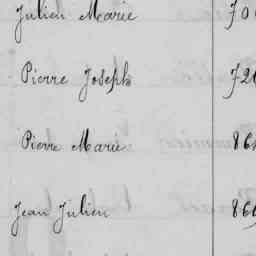 Julien Marie 70
Pierre Joseph 72
Pierre Marie 86
Jean Julien 86